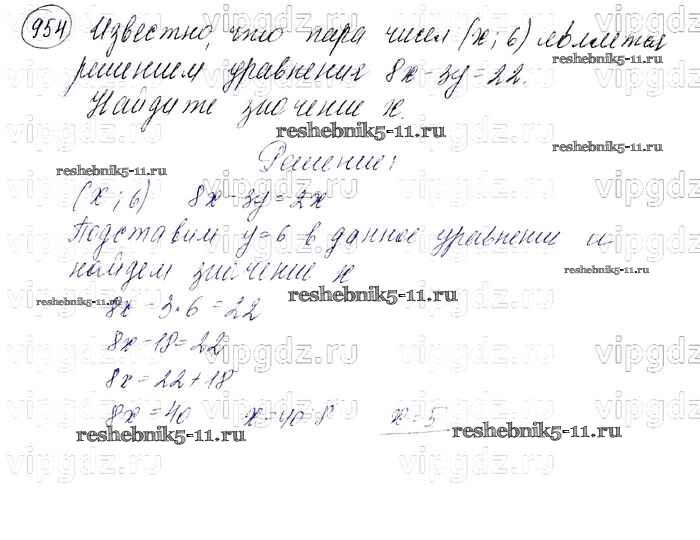 954 Известно, что пара чисел (x; 6) является
решением уравнения 8x - 3y = 22.
Найдите значение x.
reshebnik5-11.ru
reshebnik5-11.ru
reshebnik5-11.ru
Решение:
(x; 6) 8x - 3y = 2x
Подставим y = 6 в данное уравнение и
найдем значение x
reshebnik5-11.ru
reshebnik5-11.ru
reshebnik5-11.ru
8x - 3·6 = 22
8x - 18 = 22
8x = 22 + 18
8x = 40 x = 40 : 8 x = 5
reshebnik5-11.ru
reshebnik5-11.ru
vipgdz.ru
vipgdz.ru
vipgdz.ru